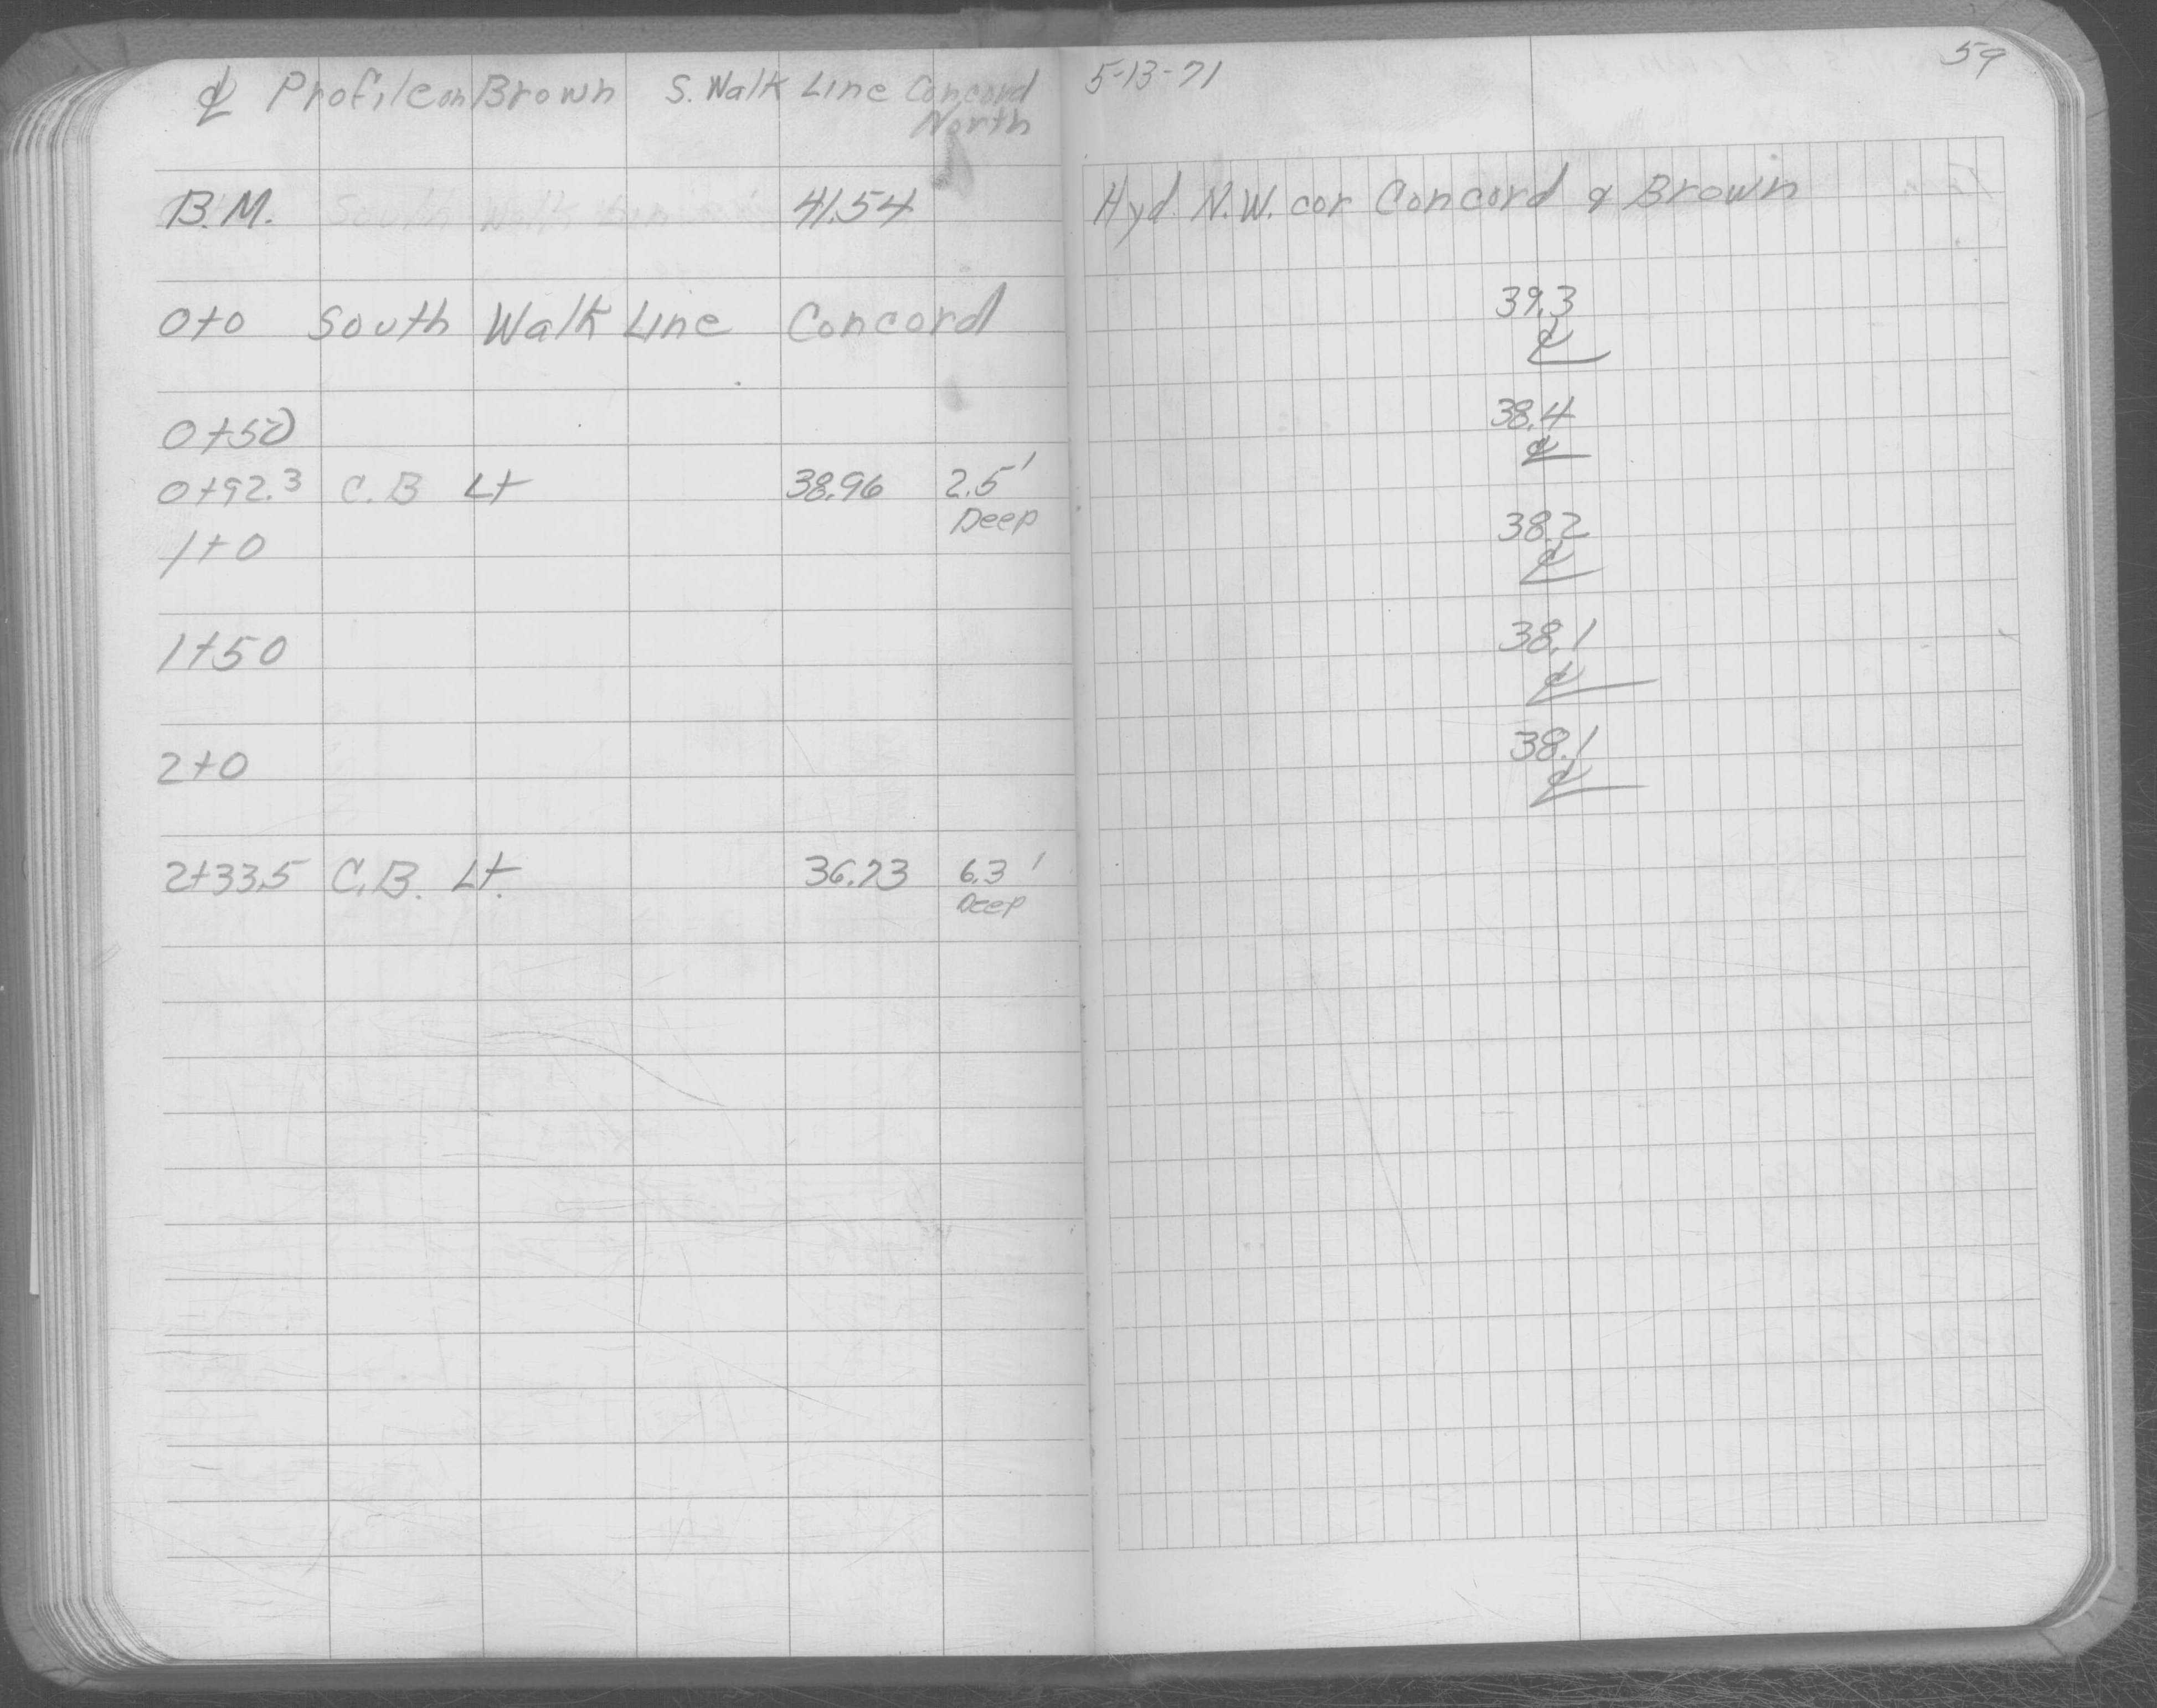 ℄ Profile on Brown S. Walk Line Concord North 5-13-71 59
B.M. 41.54 Hyd. N.W. cor Concord & Brown
0+0 South Walk Line Concord 39.3 ℄
0+50 38.4 ℄
0+92.3 C.B Lt 38.96 2.5' Deep
1+0 38.2 ℄
1+50 38.1 ℄
2+0 38.1 ℄
2+33.5 C.B. Lt. 36.73 6.3' Deep